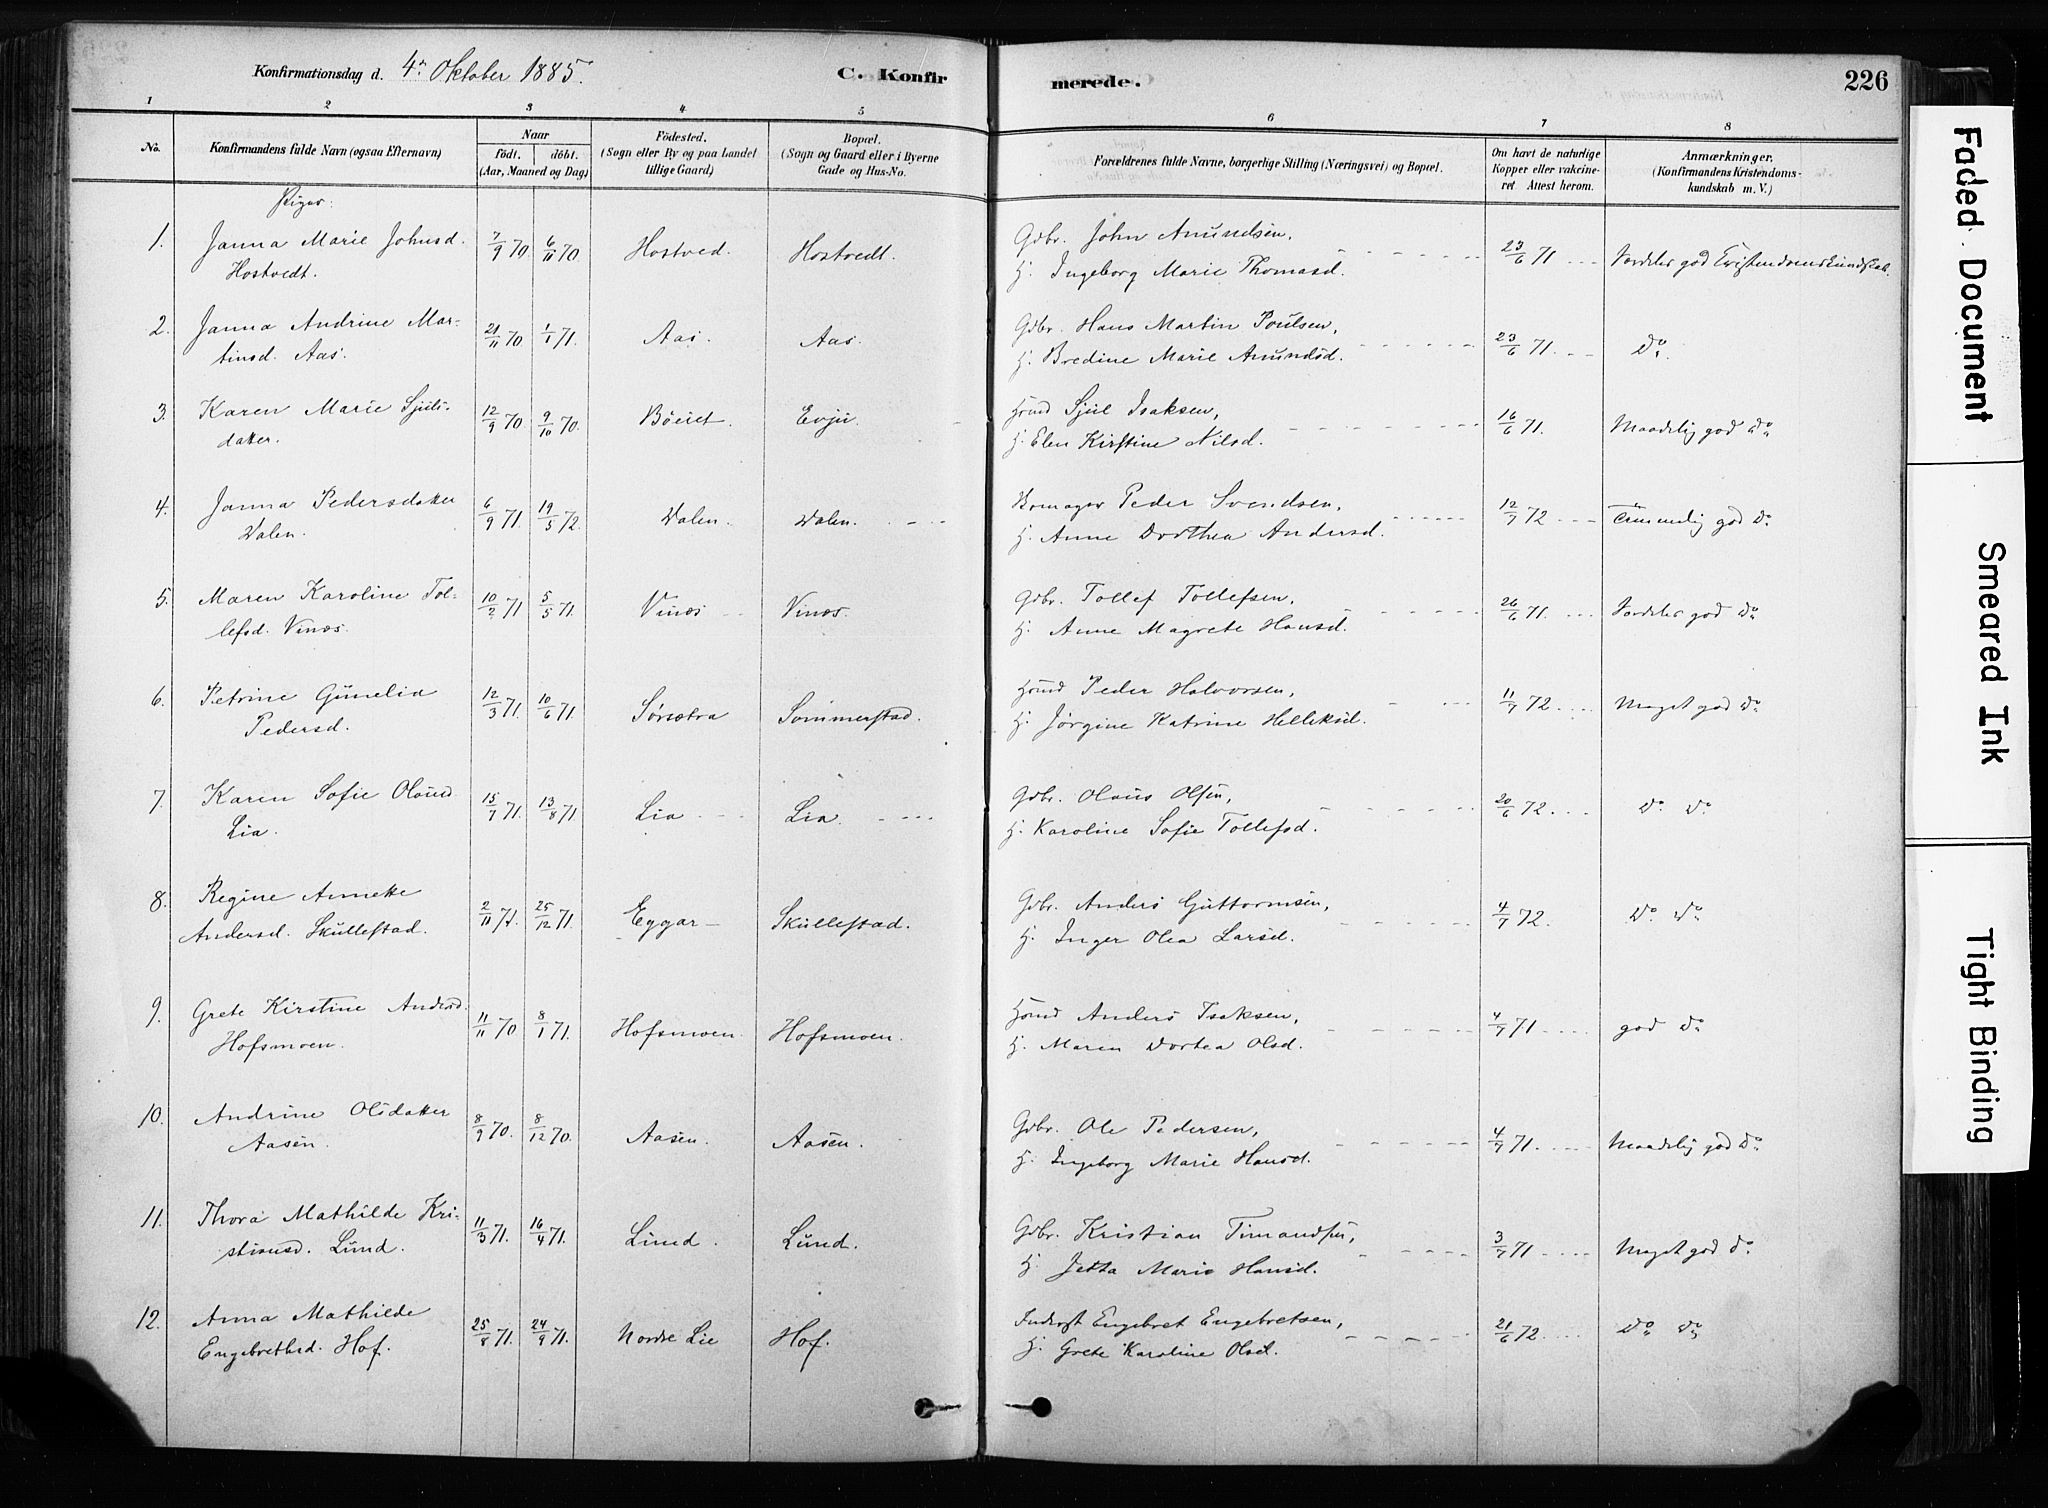 Konfirmationsdag d. 4de Oktober 1885.
C. Konfirmerede.
226
1 2 3 4 5 6 7 8
No.
Konfirmandens fulde Navn (ogsaa Efternavn)
Naar
födt. döbt.
(Aar, Maaned og Dag)
Födested.
(Sogn eller By og paa Landet tillige Gaard)
Bopæl.
(Sogn og Gaard eller i Byerne Gade og Hus-No.
Forældrenes fulde Navne, borgerlige Stilling (Næringsvei) og Bopæl.
Om havt de naturlige Kopper eller vakcineret Attest herom.
Anmærkninger.
(Konfirmandens Kristendomskundskab m. V.)
Piger:
1. Janna Marie Johnsd. 7/9 70 6/11 70. Hostved. Hostvedt. Gdbr. John Amundsen, 23/6 71 Særdeles god Kristendomskundskab.
Hostvedt. H. Ingeborg Marie Thomasd.
2. Janna Andrine Mar- 21/11 70 1/1 71. Aas. Aas. Gdbr. Hans Martin Poulsen, 23/6 71. Do.
tinsd. Aas. H. Bredine Marie Amundsd.
3. Karen Marie Sjuls- 12/9 70 9/10 70. Böeiet. Evju. Hsmd Sjul Isaksen, 16/6 71. Maadelig god do
datter. H. Elen Kirstine Nilsd.
4. Janna Pedersdatter 6/9 71. 19/5 72. Dalen. Dalen. Peder Svendsen, 12/7 72 Temmelig god Do.
Dalen. H. Anne Dorthea Andersd.
5. Maren Karoline Tol- 10/2 71 5/5 71. Vinæs Vinæs. Gdbr. Tollef Tollefsen, 26/6 71. Særdeles god Do
lefsd. Vinæs. H. Anne Magrete Hansd.
6. Petrine Gunelia 12/3 71. 10/6 71. Sørsætra Sommerstad. Hsmd Peder Halvorsen, 11/7 72 Meget god Do
Pedersd. H. Jørgine Katrine Helleksd.
7. Karen Sofie Olausd. 15/7 71. 13/8 71. Lia Lia. Gdbr. Olaus Olsen, 20/6 72. Do. Do.
Lia. H. Karoline Sofie Tollefsd.
8. Regine Annette 2/11 71. 25/12 71. Eggar Skullestad. Gdbr. Anders Guttormsen, 4/7 72. Do. Do.
Andersd. Skullestad. H. Inger Olea Larsd.
9. Grete Kirstine Andersd. 11/11 70 8/1 71. Hofsmoen. Hofsmoen. Hsmd Anders Isaksen, 4/7 71. god Do.
Hofsmoen. H. Maren Dortea Olsd.
10. Andrine Olsdatter 8/9 70. 8/12 70. Aasen. Aasen. Gdbr. Ole Pedersen, 4/7 71. Maadelig god Do.
Aasen. H. Ingeborg Marie Hansd.
11. Thora Mathilde Kri- 11/3 71. 16/4 71. Lund. Lund. Gdbr. Kristian Timandsen, 3/7 71 Meget god do.
stiansd. Lund. H. Jetta Marie Hansd.
12. Anna Mathilde 25/8 71. 24/9 71. Nordre Lie Hof. Inderst Engebret Engebretsen, 21/6 72 Do. Do.
Engebretsd. Hof. H. Grete Karoline Olsd.
Faded Document
Smeared Ink
Tight Binding